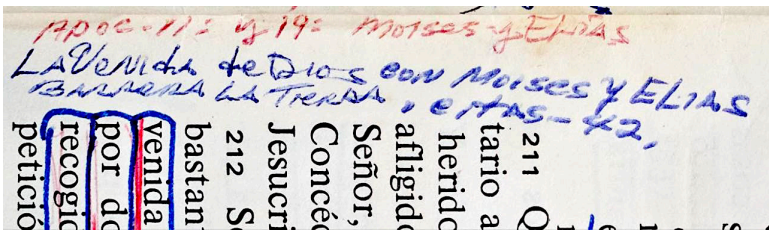 Apoc-11: y 19: Moises y Elias
LA VeNida de Dios coN Moises Y ELIAS
BARRERA LA TIERRA,
211 Q
tario a
herido
afligido
Señor,
Concéd
Jesucri
212 Se
bastan
venida
por do
recogid
petició